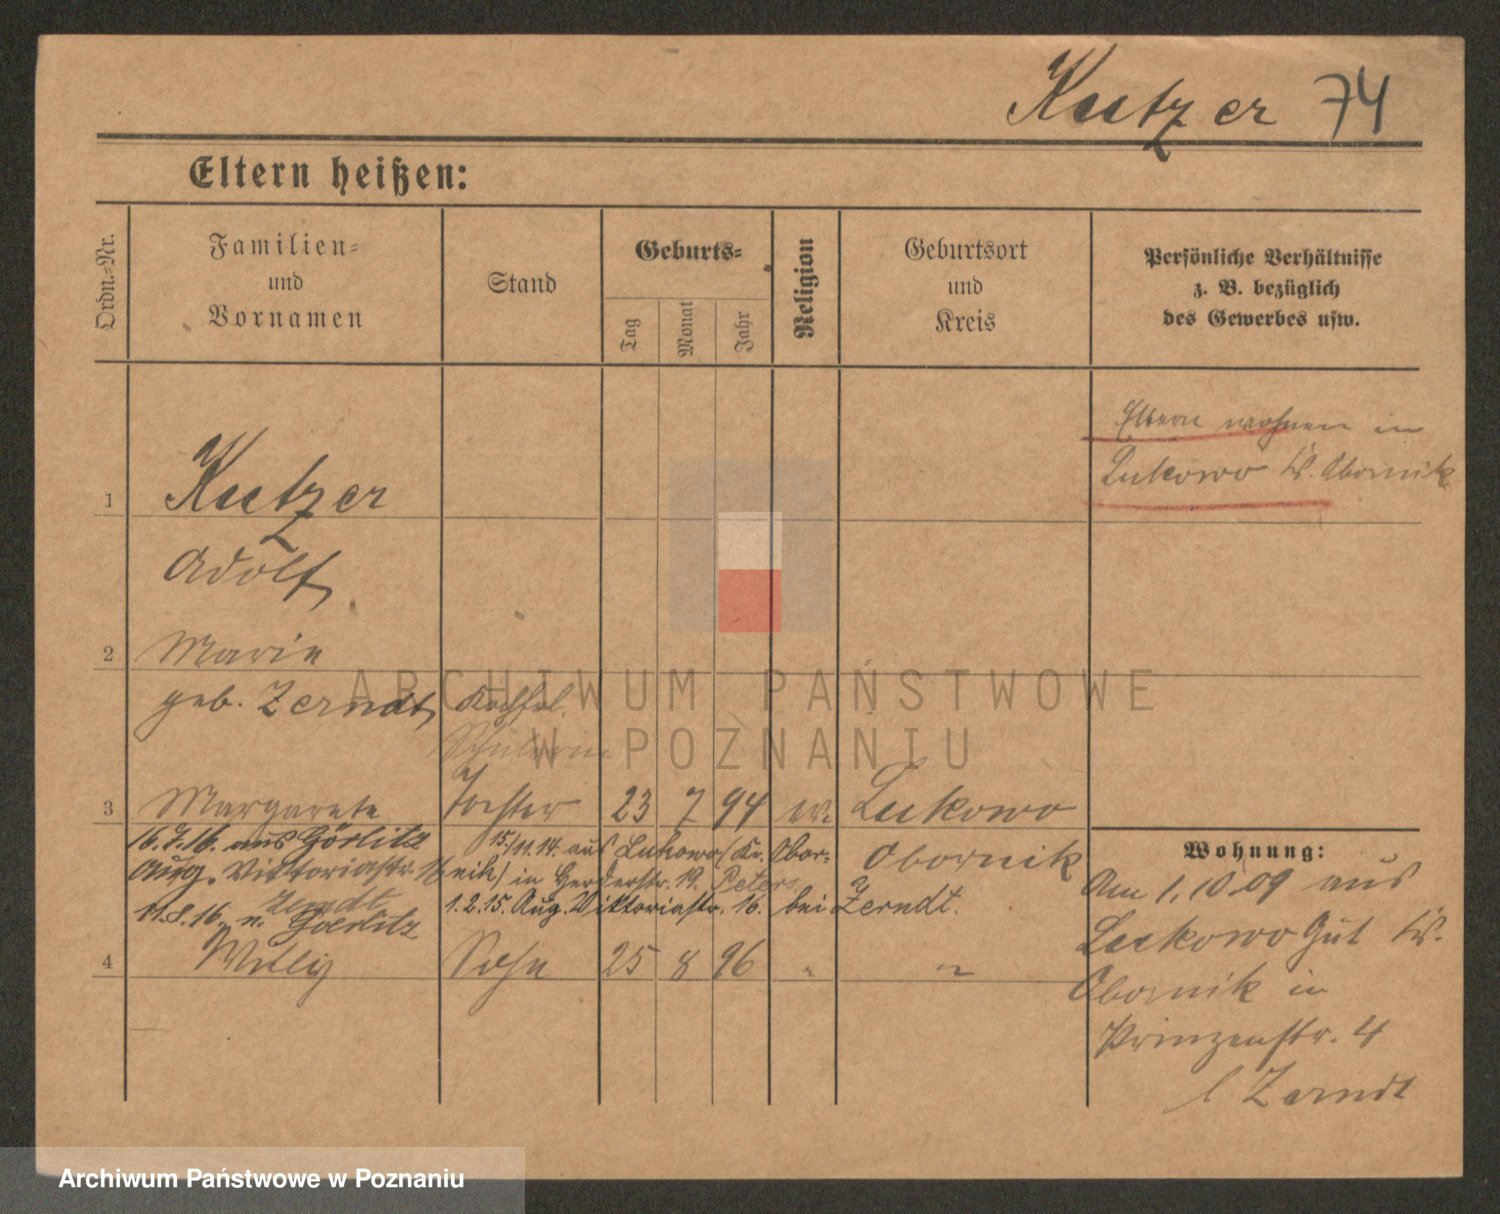 Kutzer 74
Eltern heißen:
Ordn.=Nr.
Familien=
und
Vornamen
Stand
Geburts=
Tag
Monat
Jahr
Religion
Geburtsort
und
Kreis
Persönliche Verhältnisse
z. B. bezüglich
des Gewerbes usw.
Eltern wohnen in
Lukowo Kr. Obornik
1 Kutzer
Adolf
2 Marie
geb. Zerndt
3 Margarete Tochter 23 7 94 Lukowo
Obornik
16.7.16. aus Görlitz
Aug. Viktoriastr. 16
Zerndt
11.8.16. n. Goerlitz
15/11.14. aus Lukowo (Kr. Obor=
nik) in Herderstr. 19. Peters
1.2.15. Aug. Viktoriastr. 16. bei Zerndt.
4 Willy Sohn 25 8 96 " "
Wohnung:
Am 1.10.09 aus
Lukowo Gut Kr.
Obornik in
Prinzenstr. 4
Zerndt
ARCHIWUM PAŃSTWOWE
W POZNANIU
Archiwum Państwowe w Poznaniu